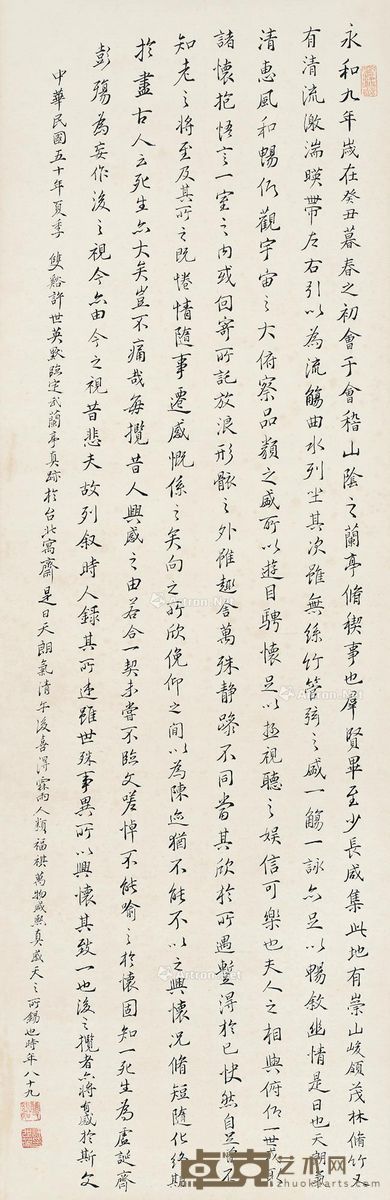 永和九年歲在癸丑暮春之初會于會稽山陰之蘭亭脩稧事也羣賢畢至少長咸集此地有崇山峻領茂林脩竹又
有清流激湍暎帶左右引以為流觴曲水列坐其次雖無絲竹管弦之盛一觴一詠亦足以暢敘幽情是日也天朗氣
清惠風和暢仰觀宇宙之大俯察品類之盛所以遊目騁懷足以極視聽之娛信可樂也夫人之相與俯仰一世或取
諸懷抱悟言一室之內或因寄所託放浪形骸之外雖趣舍萬殊靜躁不同當其欣於所遇蹔得於己怏然自足曾不
知老之將至及其所之既惓情隨事遷感慨係之矣向之所欣俛仰之間以為陳迹猶不能不以之興懷況脩短隨化終期
於盡古人云死生亦大矣豈不痛哉每攬昔人興感之由若合一契未嘗不臨文嗟悼不能喻之於懷固知一死生為虛誕齊
彭殤為妄作後之視今亦由今之視昔悲夫故列敘時人錄其所述雖世殊事異所以興懷其致一也後之攬者亦將有感於斯文
中華民國五十年夏季 雙谿許世英敬臨定武蘭亭真跡於台北寓齋是日天朗氣清午後喜得霖雨人類福祺萬物咸熙真盛天之所錫也時年八十九
卓克艺术网